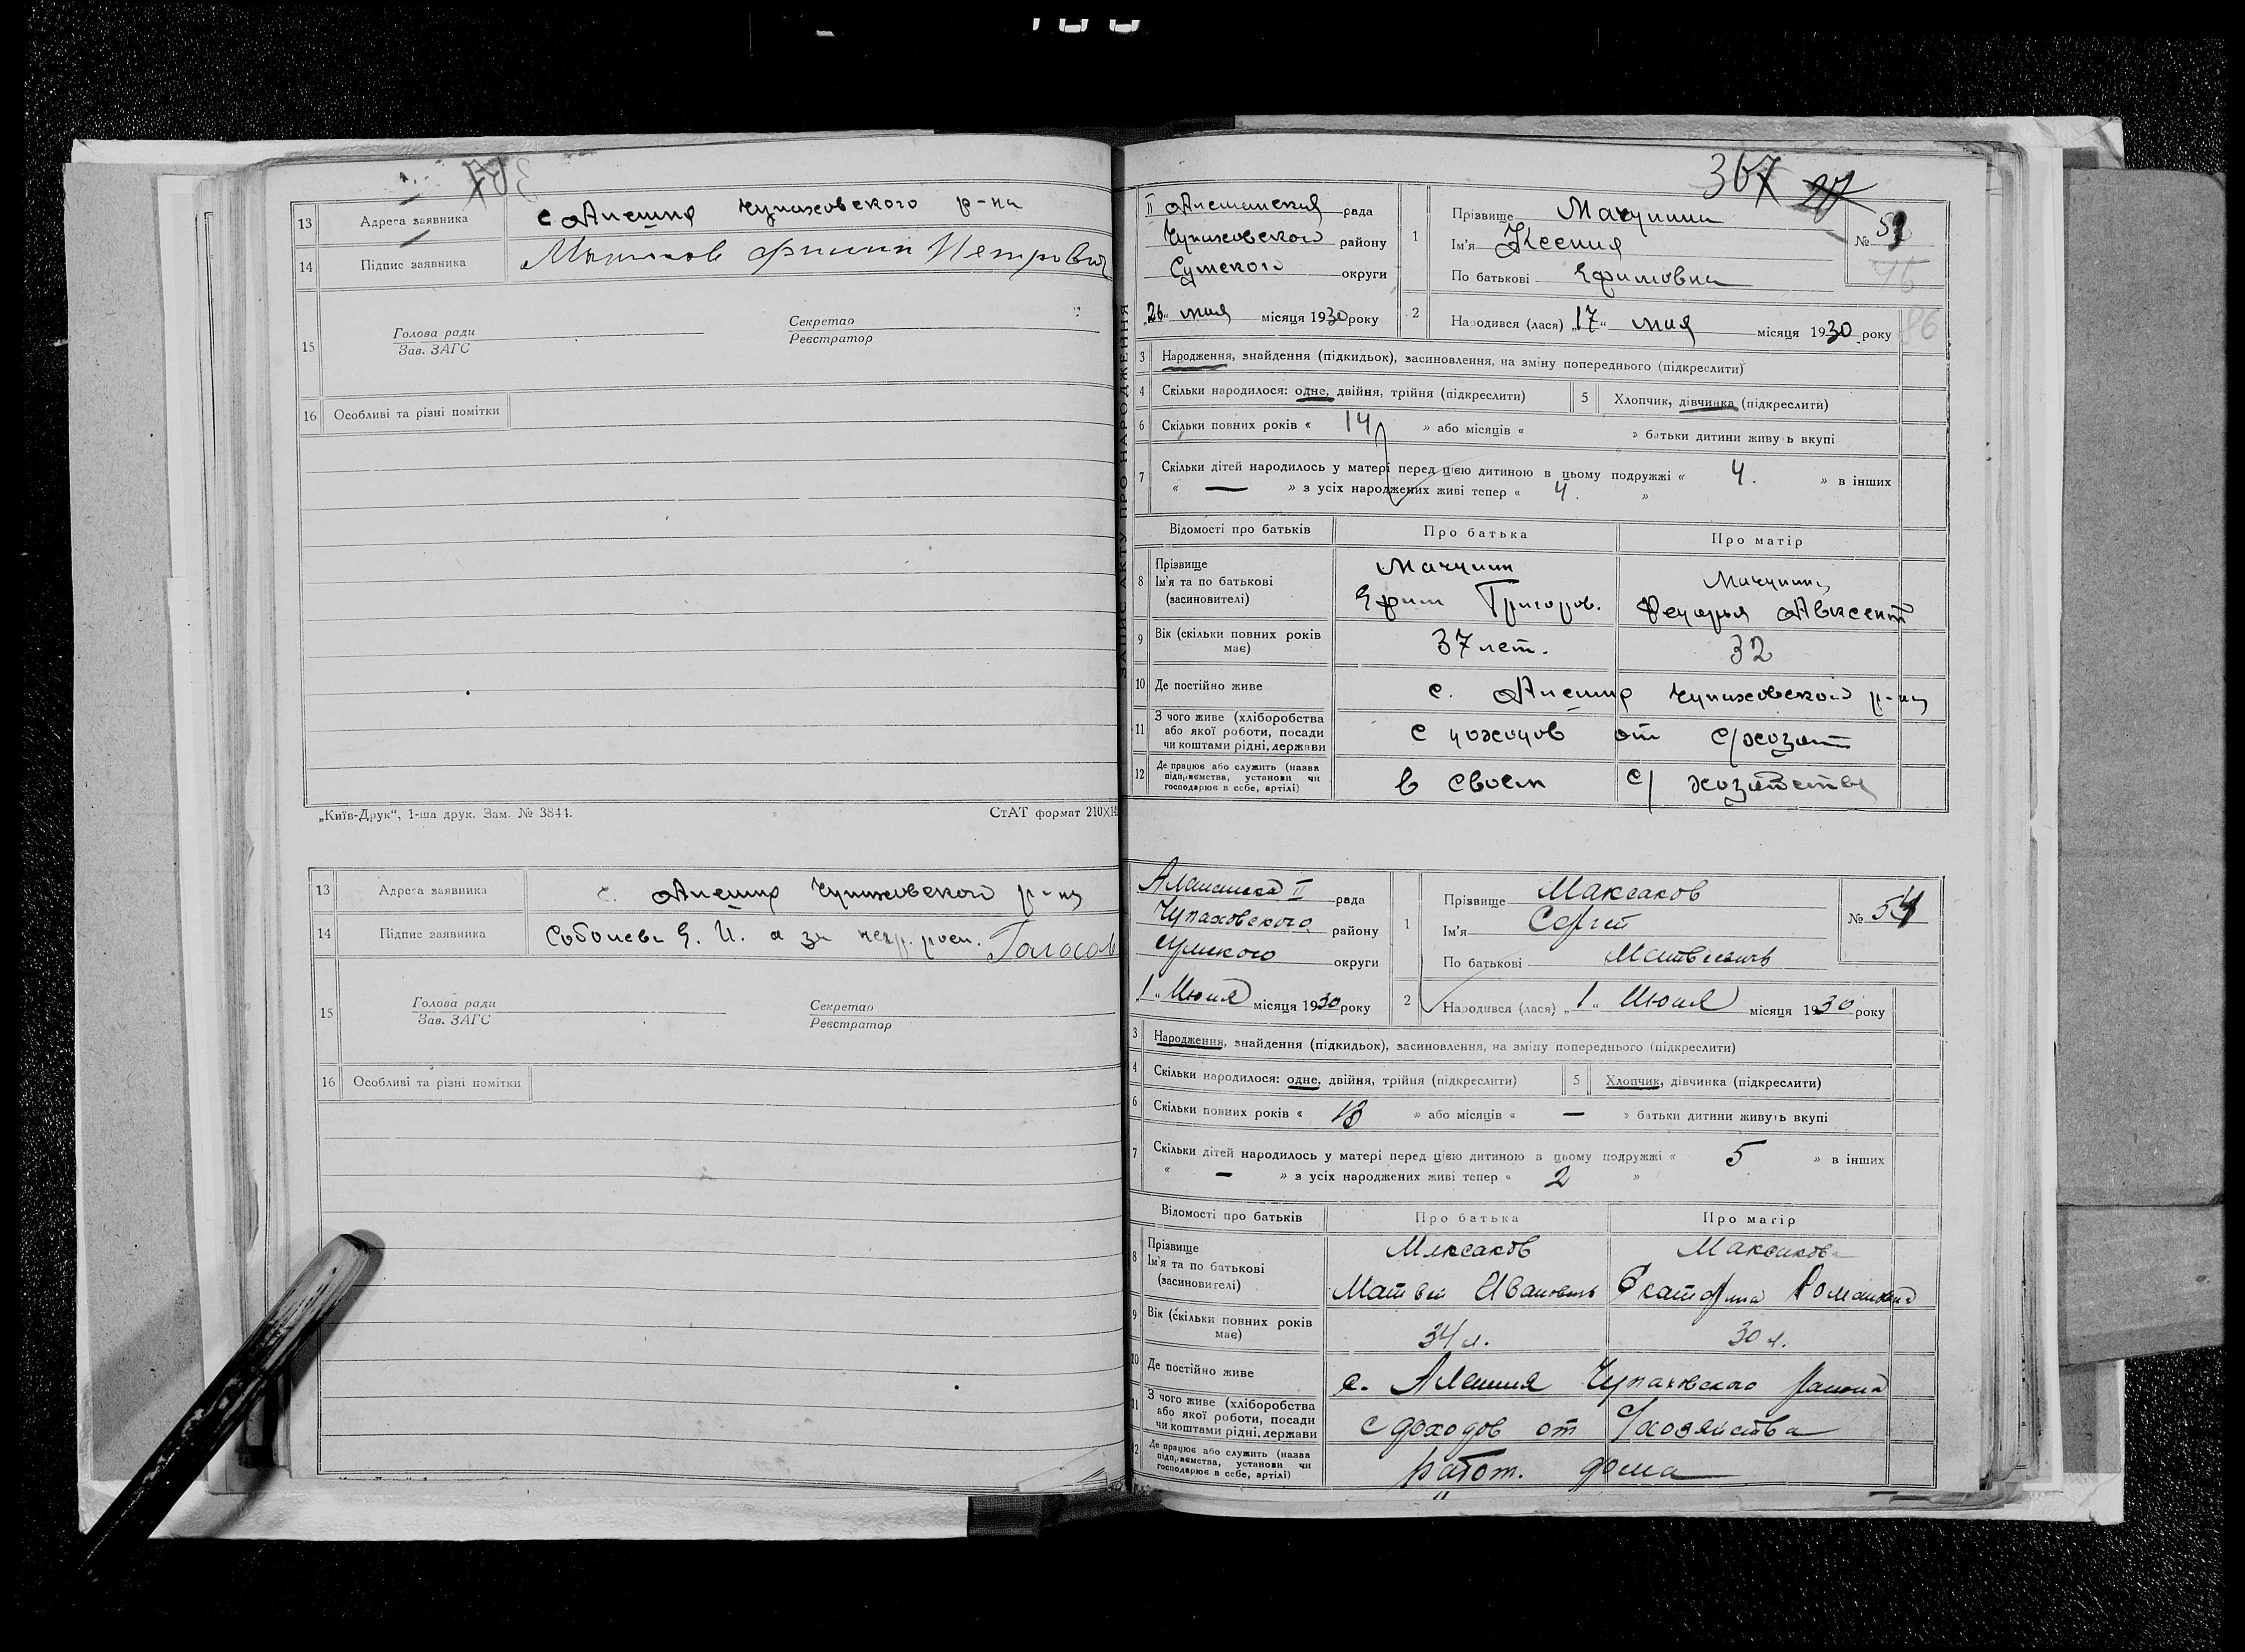 13 Адреса заявника с Алешня Чупаховского р-на
14 Підпис заявника Филип Петрович
15 Голова ради Секретар
Зав. ЗАГС Реєстратор
16 Особливі та різні помітки
„Київ-Друк“, 1-ша друк. Зам. № 3844. СтАТ формат 210×14
13 Адреса заявника с. Алешня Чупаховского р-на
14 Підпис заявника Е. И. а за негр. росп. Голосов
15 Голова ради Секретар
Зав. ЗАГС Реєстратор
16 Особливі та різні помітки
367 27
ЗАПИС АКТУ ПРО НАРОДЖЕННЯ
II Алешанская рада
Чупаховского району
Сумского округи
„26“ мая місяця 1930 року
1 Прізвище
Ім'я Ксения
По батькові Ефимовна
№
2 Народився (лася) „17“ мая місяця 1930 року 86
3 Народження, знайдення (підкидьок), засиновлення, на зміну попереднього (підкреслити)
4 Скільки народилося: одне, двійня, трійня (підкреслити) 5 Хлопчик, дівчинка (підкреслити)
6 Скільки повних років « 14 » або місяців « » батьки дитини живуть вкупі
7 Скільки дітей народилось у матері перед цією дитиною в цьому подружжі « 4. » в інших
« — » з усіх народжених живі тепер « 4. »
Відомості про батьків Про батька Про матір
8 Прізвище
Ім'я та по батькові Ефим Григоров. Авксент
(засновителі)
9 Вік (скільки повних років має) 37 лет. 32
10 Де постійно живе с. Алешня Чупаховского р-на
11 З чого живе (хліборобства або якої роботи, посади чи коштами рідні, держави с доходов от с/хозяйст
12 Де працює або служить (назва підприємства, установи чи господарює в себе, артілі) в своем с/хозяйстве
Алешанска II рада
Чупаховского району
Сумского округи
„1“ Июня місяця 1930 року
1 Прізвище Максаков
Ім'я Сергей
По батькові Матвеевичь
№ 54
2 Народився (лася) „1“ Июня місяця 1930 року
3 Народження, знайдення (підкидьок), засиновлення, на зміну попереднього (підкреслити)
4 Скільки народилося: одне, двійня, трійня (підкреслити) 5 Хлопчик, дівчинка (підкреслити)
6 Скільки повних років « 13 » або місяців « — » батьки дитини живуть вкупі
7 Скільки дітей народилось у матері перед цією дитиною в цьому подружжі « 5 » в інших
« — » з усіх народжених живі тепер « 2 »
Відомості про батьків Про батька Про матір
8 Прізвище Максаков Максакова
Ім'я та по батькові Матвей Ивановичь Екатерина Романовна
(засиновителі)
9 Вік (скільки повних років має) 34 л. 30 л.
10 Де постійно живе с. Алешня Чупаховского района
11 З чого живе (хліборобства або якої роботи, посади чи коштами рідні, держави с доходов от с/хозяйства
12 Де працює або служить (назва підприємства, установи чи господарює в себе, артілі) работ. дома